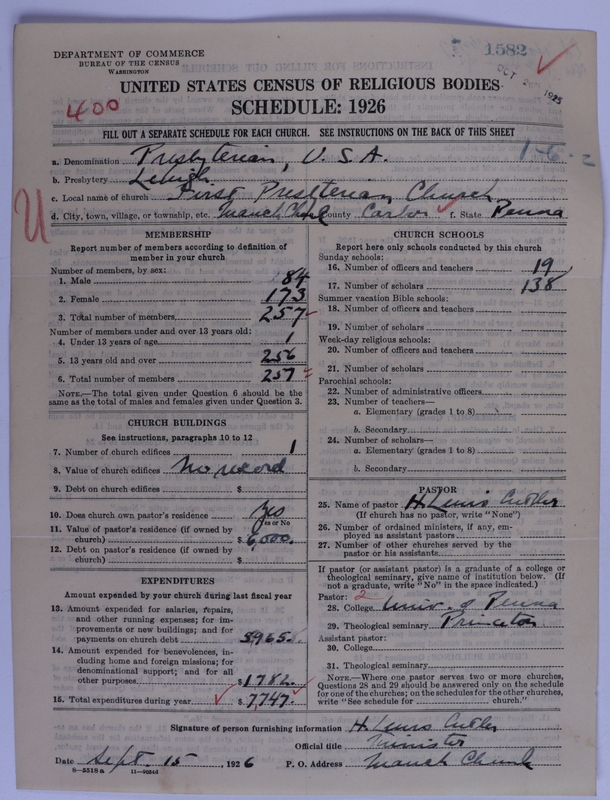 DEPARTMENT OF COMMERCE
BUREAU OF THE CENSUS
WASHINGTON
1582
OCT
UNITED STATES CENSUS OF RELIGIOUS BODIES
SCHEDULE: 1926
400
FILL OUT A SEPARATE SCHEDULE FOR EACH CHURCH. SEE INSTRUCTIONS ON THE BACK OF THIS SHEET
a. Denomination Presbyterian, U.S.A.
1-6-2
b. Presbytery Lehigh
c. Local name of church First Presbterian Church
d. City, town, village, or township, etc. Mauch Chunk County Carbon f. State Penna
U
MEMBERSHIP
Report number of members according to definition of
member in your church
Number of members, by sex:
1. Male 84
2. Female 173
3. Total number of members 257
Number of members under and over 13 years old:
4. Under 13 years of age 1
5. 13 years old and over 256
6. Total number of members 257
NOTE.—The total given under Question 6 should be the
same as the total of males and females given under Question 3.
CHURCH BUILDINGS
See instructions, paragraphs 10 to 12
7. Number of church edifices 1
8. Value of church edifices No record
9. Debt on church edifices $
10. Does church own pastor's residence Yes
Yes or No
11. Value of pastor's residence (if owned by
church) $ 6,000.
12. Debt on pastor's residence (if owned by
church) $
EXPENDITURES
Amount expended by your church during last fiscal year
13. Amount expended for salaries, repairs,
and other running expenses; for im-
provements or new buildings; and for
payments on church debt 5965.
14. Amount expended for benevolences, in-
cluding home and foreign missions; for
denominational support; and for all
other purposes 1782.
15. Total expenditures during year $ 7747.
CHURCH SCHOOLS
Report here only schools conducted by this church
Sunday schools:
16. Number of officers and teachers 19
17. Number of scholars 138
Summer vacation Bible schools:
18. Number of officers and teachers
19. Number of scholars
Week-day religious schools:
20. Number of officers and teachers
21. Number of scholars
Parochial schools:
22. Number of administrative officers
23. Number of teachers—
a. Elementary (grades 1 to 8)
b. Secondary
24. Number of scholars—
a. Elementary (grades 1 to 8)
b. Secondary
PASTOR
25. Name of pastor H. Lewis Cutler
(If church has no pastor, write "None")
26. Number of ordained ministers, if any, em-
ployed as assistant pastors
27. Number of other churches served by the
pastor or his assistants
If pastor (or assistant pastor) is a graduate of a college or
theological seminary, give name of institution below. (If
not a graduate, write "No" in the space indicated.)
Pastor: 2
28. College Univ. of Penna
29. Theological seminary Princeton
Assistant pastor:
30. College
31. Theological seminary
NOTE.—Where one pastor serves two or more churches,
Questions 28 and 29 should be answered only on the schedule
for one of the churches; on the schedules for the other churches,
write "See schedule for church."
Signature of person furnishing information H. Lewis Cutler
Official title Minister
Date Sept. 15, 1926 P. O. Address Mauch Chunk
8—5518a 11—9034d